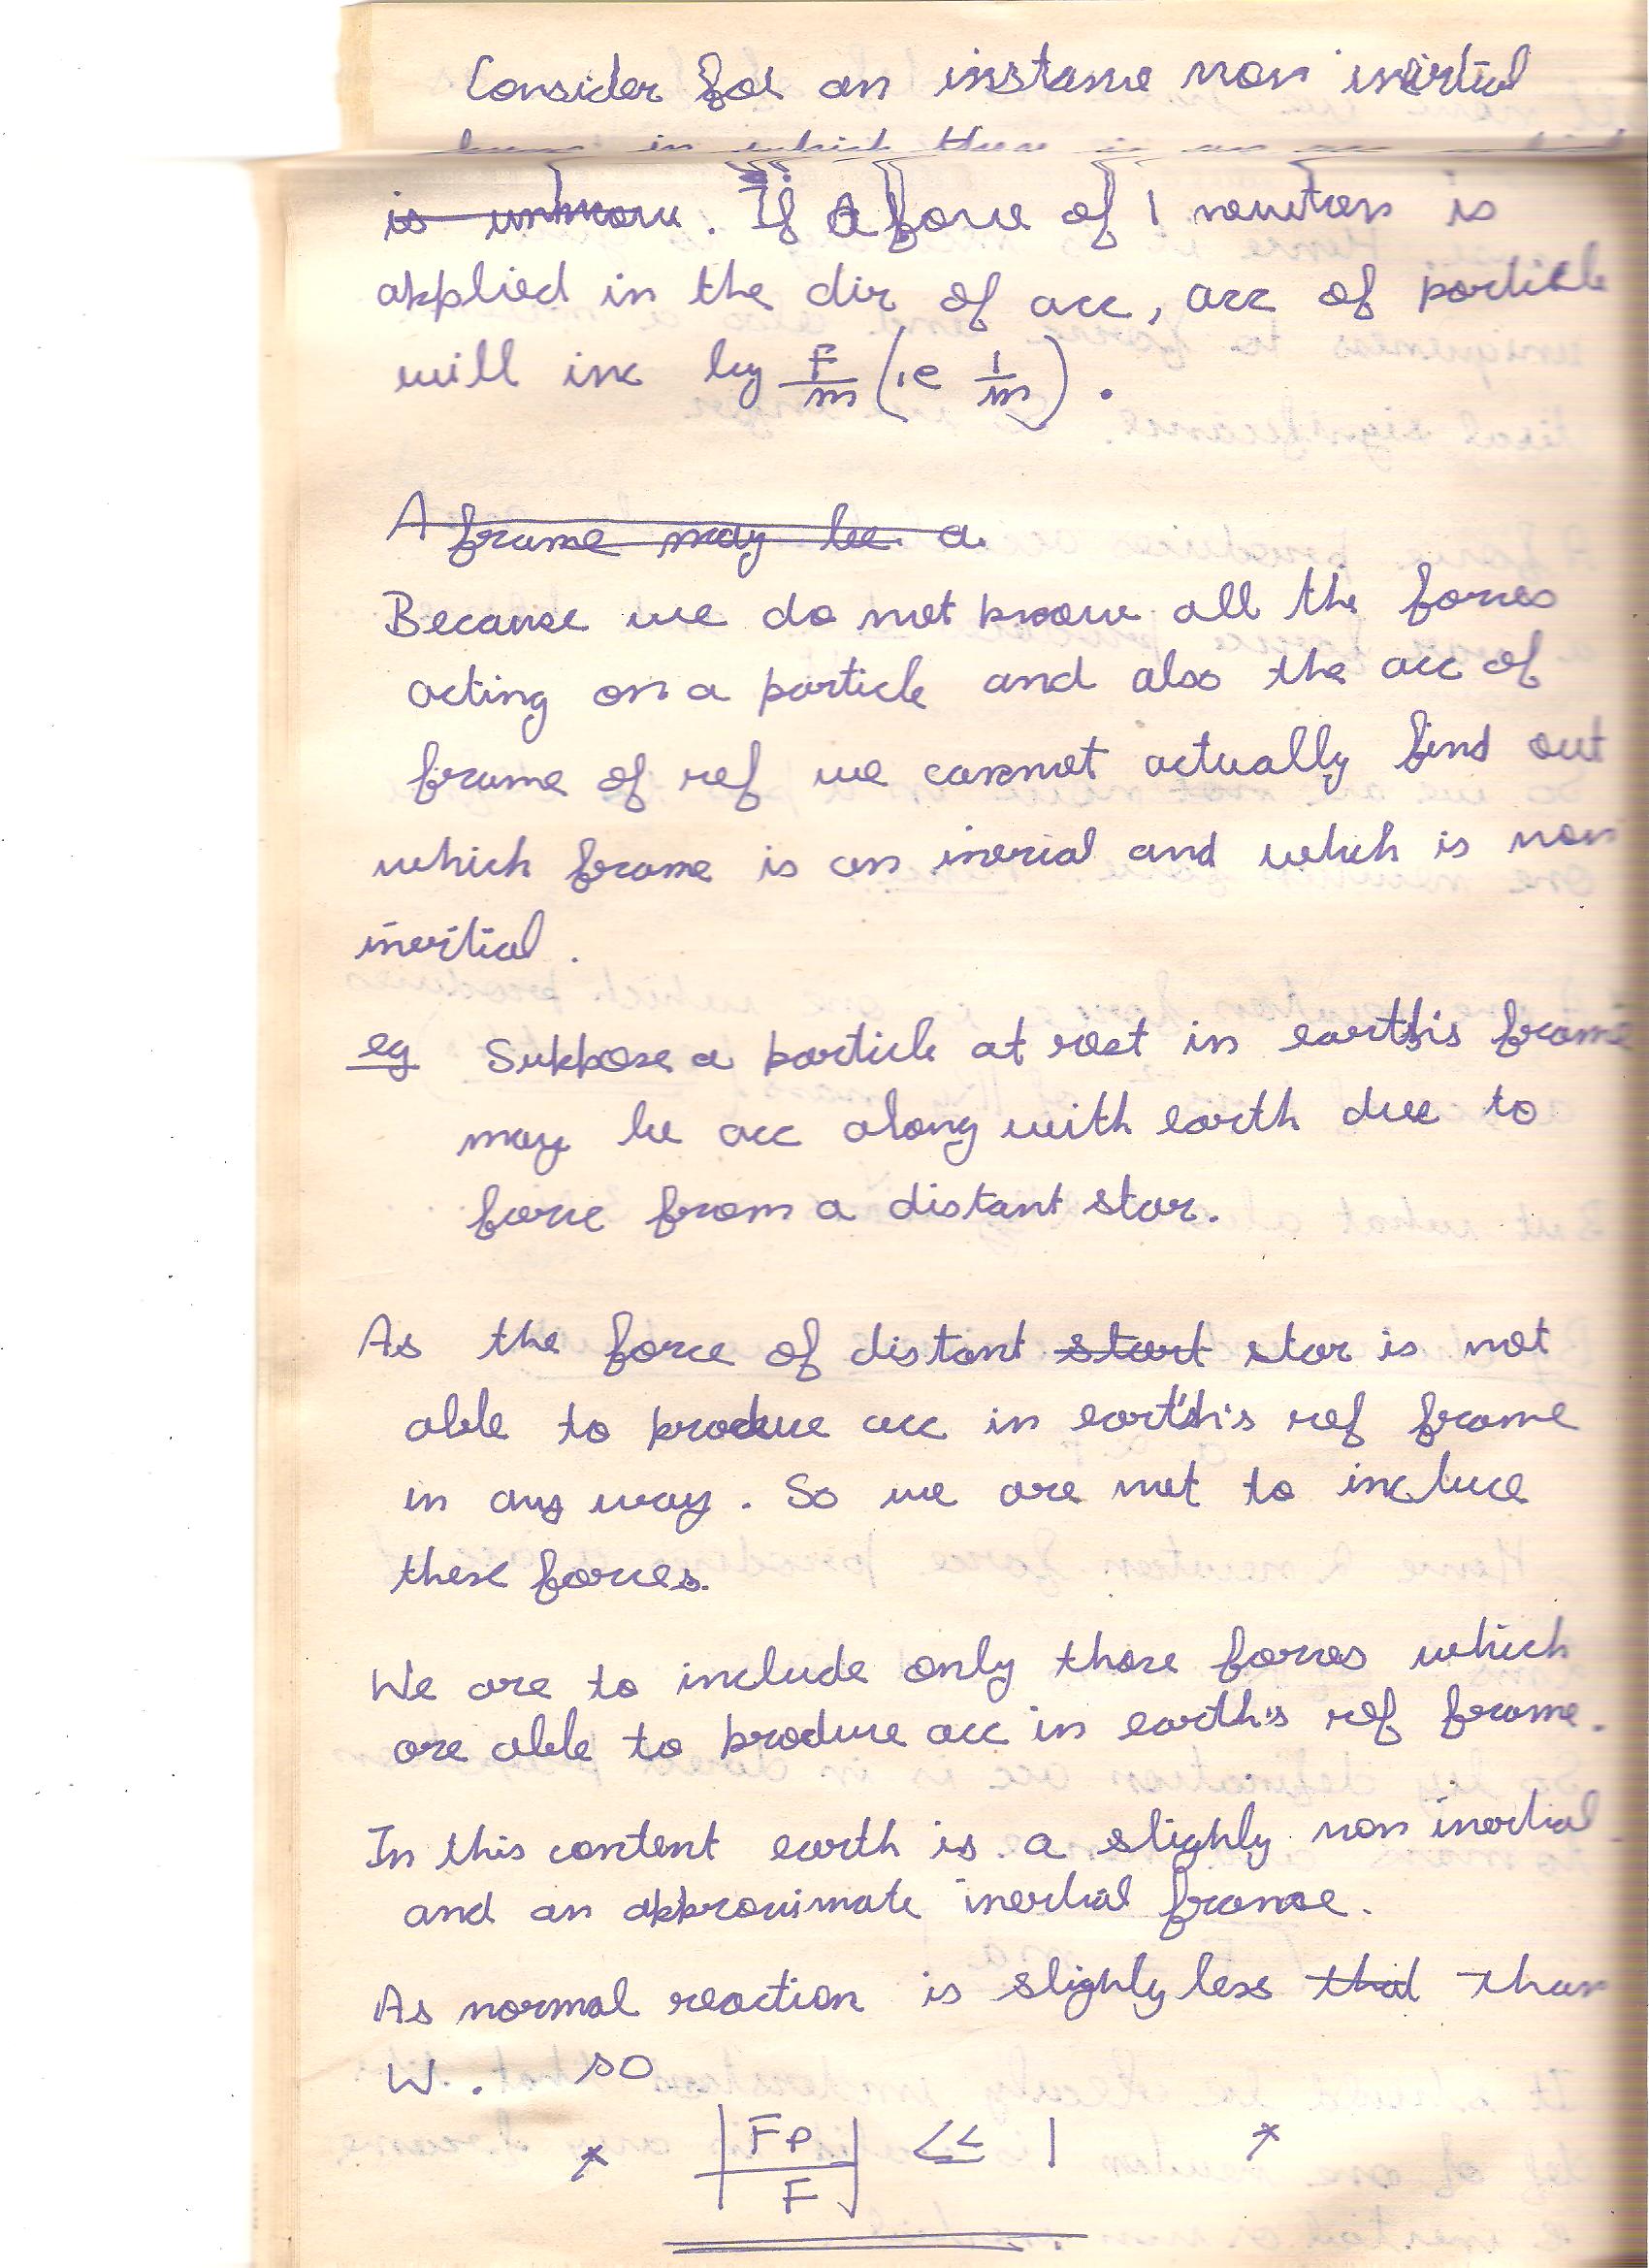 Consider for an instance non inertial
in which there is an acc
is unknown. If a force of 1 newton is
applied in the dir of acc, acc of particle
will inc by F/m (ie 1/m).
A frame may be a
Because we do not know all the forces
acting on a particle and also the acc of
frame of ref we cannot actually find out
which frame is an inerial and which is non
inertial.
eg Suppose a particle at rest in earth's frame
may be acc along with earth due to
force from a distant star.
As the force of distant start star is not
able to produce acc in earth's ref frame
in any way. So we are not to incluce
these forces.
We are to include only those forces which
are able to produce acc in earth's ref frame.
In this content earth is a slighly non inertial
and an approximate inertial frame.
As normal reaction is slighly less that than
W. so
* |Fp/F| << 1 *